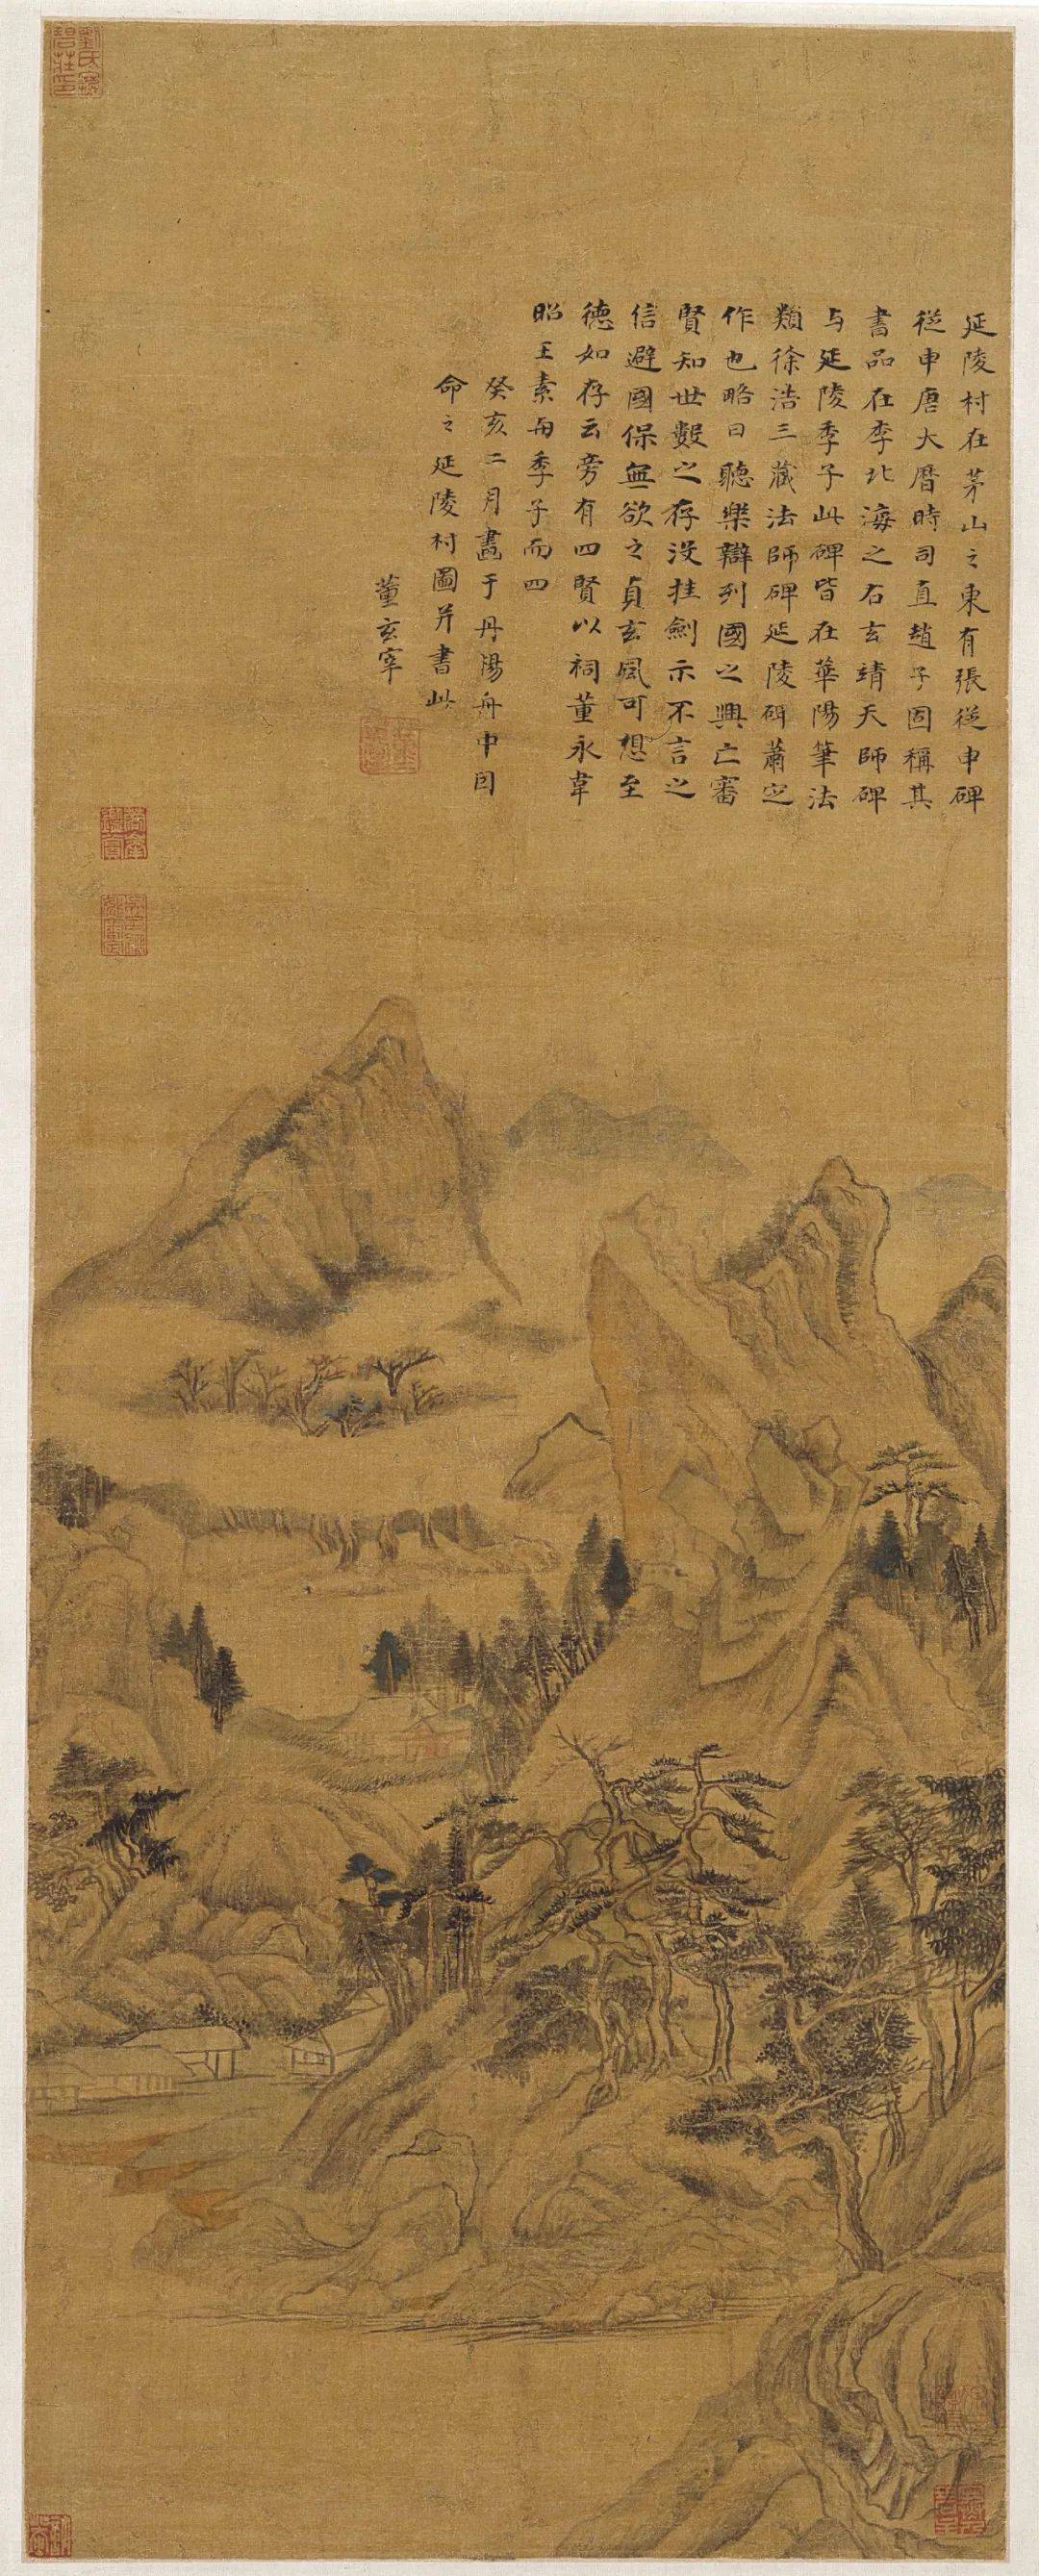 延陵村在茅山之東有張從申碑
從申唐大曆時司直趙子固稱其
書品在李北海之右玄靖天師碑
与延陵季子此碑皆在華陽筆法
類徐浩三藏法師碑延陵碑蕭定
作也略曰聽樂辯列國之興亡審
賢知世數之存沒挂劍示不言之
信避國保無欲之貞玄風可想至
德如存云旁有四賢以祠董永韋
昭王素与季子而四
癸亥二月畵于丹湯舟中因
命之延陵村圖并書此
董玄宰